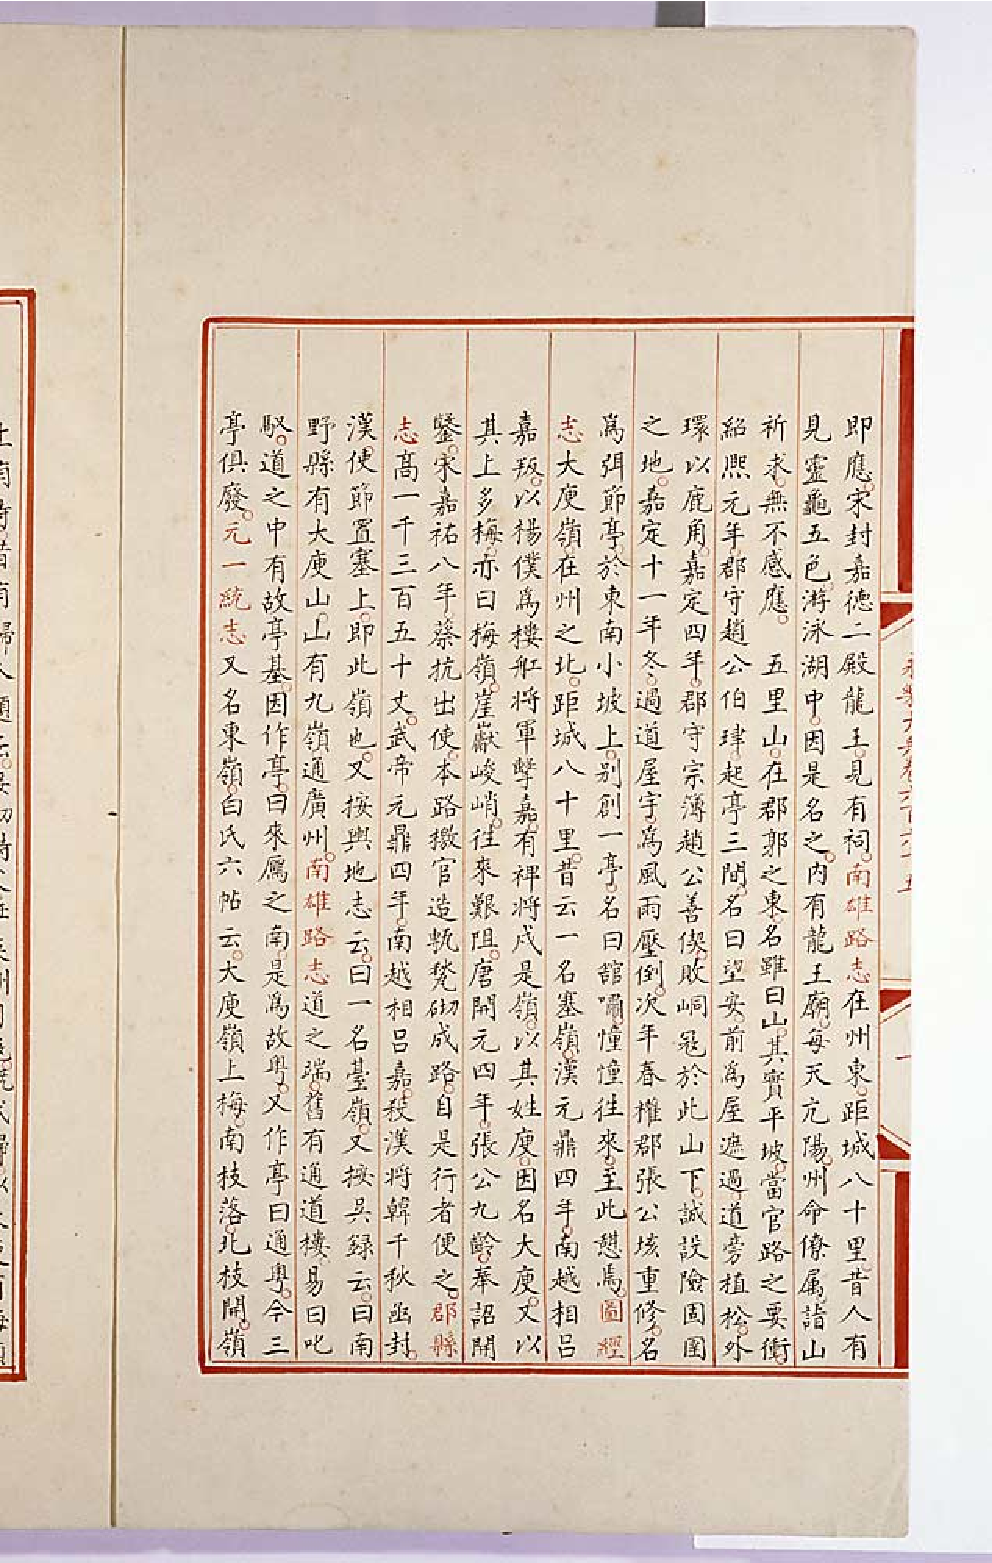 即應。宋封嘉德二殿龍王。見有祠。南雄路志在州東。距城八十里。昔人有
見靈龜五色。游泳湖中。因是名之。内有龍王廟。每天亢陽。州命僚属詣山
祈求。無不感應。 五里山。在郡郭之東。名雖曰山。其實平坡。當官路之要衝。
紹熙元年。郡守趙公伯㻶起亭三間。名曰望安。前為屋遮過道。旁植松。外
環以鹿角。嘉定四年。郡守宗簿趙公善偰。敗峒冦於此山下。誠設險固圉
之地。嘉定十一年冬。過道屋宇。為風雨壓倒。次年春權郡張公垓重修。名
為弭節亭。於東南小坡上。别創一亭。名曰舘嚼憧憧徃來。至此憇焉。圖經
志大庾嶺。在州之北。距城八十里。昔云一名塞嶺。漢元鼎四年。南越相吕
嘉叛。以楊僕為樓舡将軍擊嘉。有裨将戍是嶺。以其姓庾。因名大庾。又以
其上多梅。亦曰梅嶺。崖巘峻峭。徃來艱阻。唐開元四年。張公九齡。奉詔開
鑿。宋嘉祐八年。蔡抗出使。本路檄官造甎甃砌成路。自是行者便之。郡縣
志高一千三百五十丈。武帝元鼎四年。南越相吕嘉。殺漢将韓千秋函封。
漢使節置塞上。即此嶺也。又按輿地志云。曰一名臺嶺。又按吳録云。曰南
野縣有大庾山。山有九嶺通廣州。南雄路志道之端。舊有通道樓。易曰叱
馭。道之中有故亭基。因作亭。曰來鴈之南。是為故粤。又作亭曰通粤。今三
亭俱廢。元一統志又名東嶺。白氏六帖云。大庾嶺上梅。南枝落。北枝開。嶺